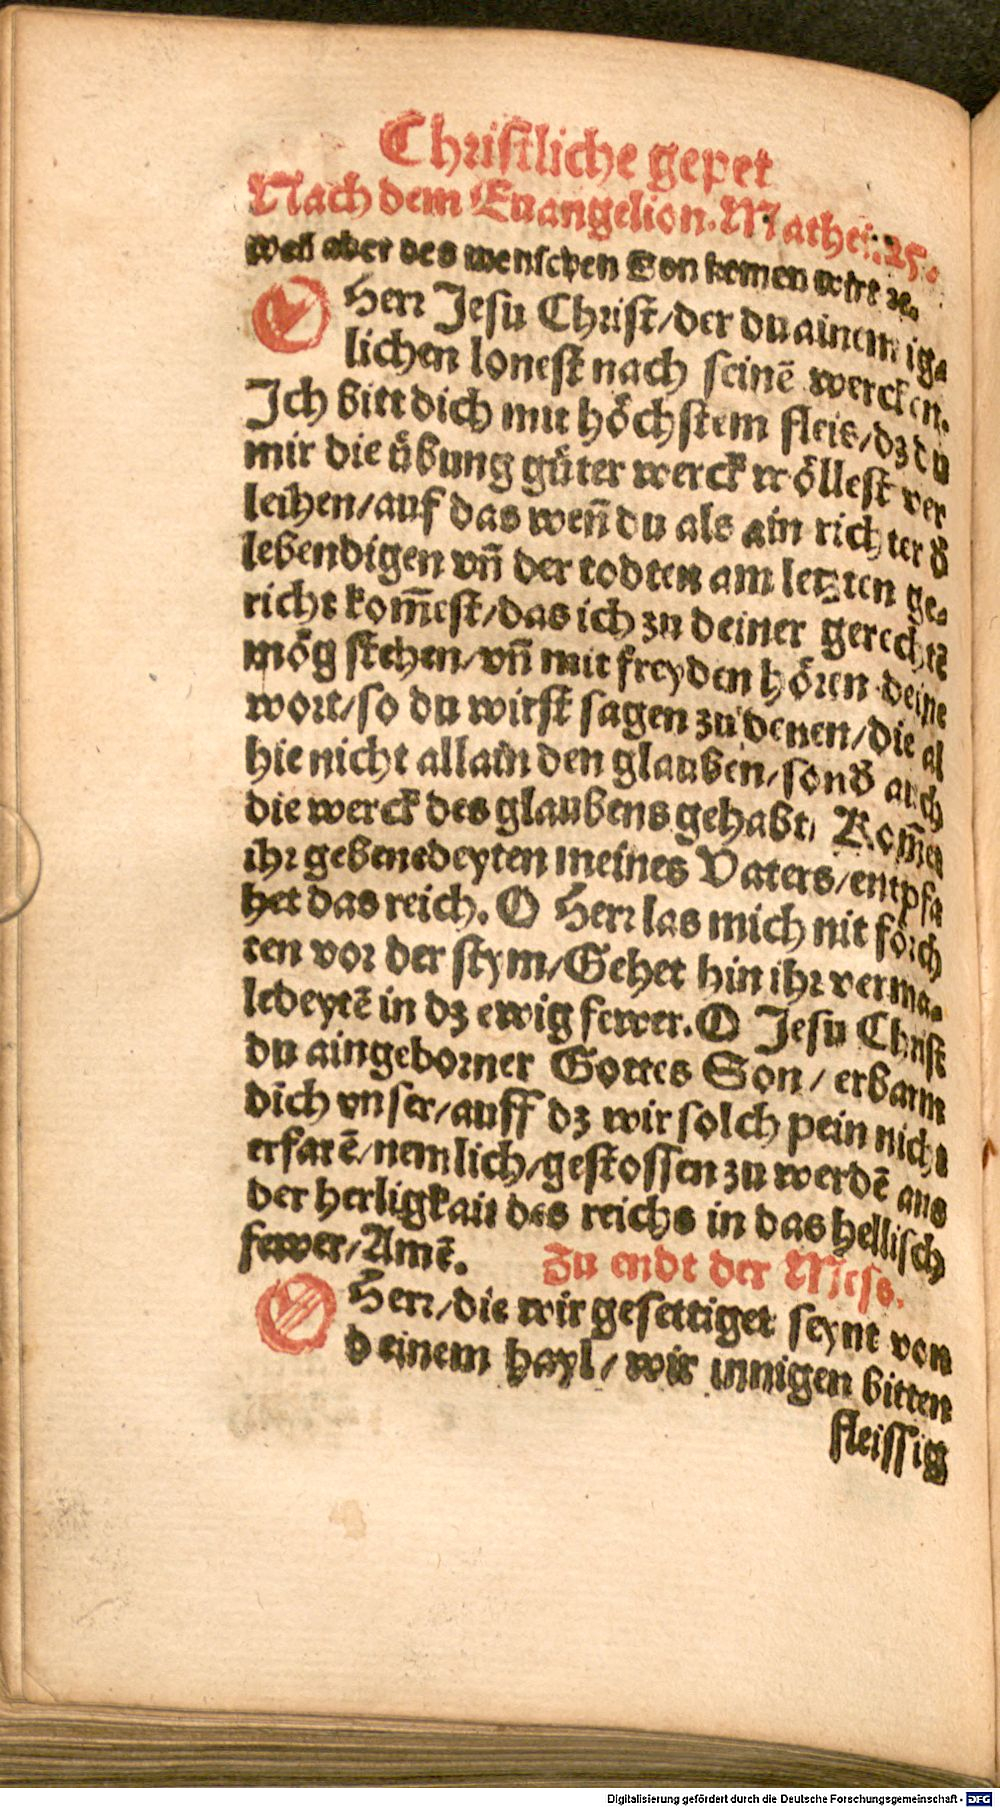 Christliche gepet
Nach dem Euangelion. Mathei. 25.
wen aber des menschen Son komen wirt ꝛc.
O Herr Jesu Christ/der du ainem ig⸗
lichen lonest nach seinē wercken.
Ich bitt dich mit höchstem fleis/dz du
mir die übung güter werck wöllest ver
leihen/auf das weñ du als ain richter d̕
lebendigen vñ der todten am letzten ge⸗
richt kom̃est/das ich zu deiner gerechtē
mög stehen/vñ mit freyden hören deine
wort/so du wirst sagen zu denen/die al
hie nicht allain den glauben/sond̕ auch
die werck des glaubens gehabt/ Kom̃et
ihr gebenedeyten meines Vaters/entpfa
het das reich. O Herr las mich nit förch
ten vor der stym/Gehet hin ihr verma⸗
ledeytē in dz ewig fewer. O Jesu Christ
du aingeborner Gottes Son/ erbarm
dich vnser/auff dz wir solch pein nicht
erfarē/nemlich/gestossen zu werdē aus
der herligkait des reichs in das hellisch
fewer/Amē. Zu endt der Mess.
O Herr/die wir gesettiget seynt von
deinem hayl/ wir innigen bitten
fleissig
Digitalisierung gefördert durch die Deutsche Forschungsgemeinschaft - DFG